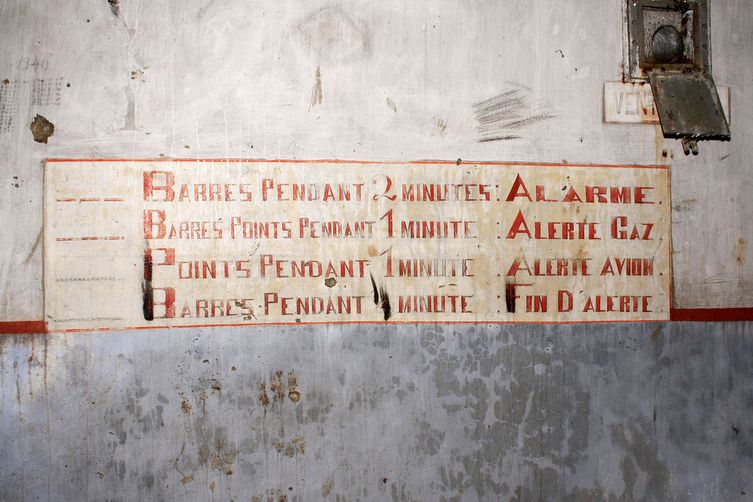 1940
VEN
BARRES PENDANT 2 MINUTES : ALARME.
BARRES POINTS PENDANT 1 MINUTE : ALERTE GAZ
POINTS PENDANT 1 MINUTE : ALERTE AVION.
BARRES PENDANT 1 MINUTE : FIN D'ALERTE